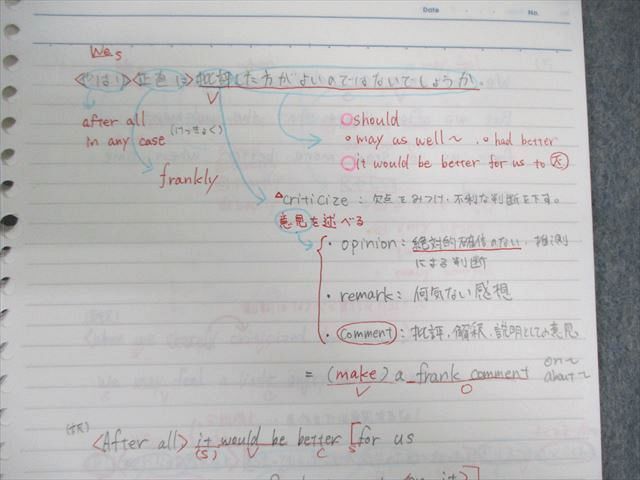 Date
No.
We s
<やはり> <正直に> 批評した方がよいのではないでしょうか.
V
after all
in any case (けっきょく)
frankly
○should
○ may as well ~ , ○ had better
○it would be better for us to 不
△criticize : 欠点をみつけ、不利な判断を下す。
意見を述べる
・opinion : 絶対的確信のない、推測
による判断
・remark : 何気ない感想
・comment : 批評、解釈、説明としての意見
= (make) a frank comment on~
about~
V O
<After all> it would be better [for us
(S) V C S